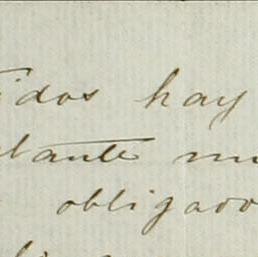 idos hay
tante mu
obligado